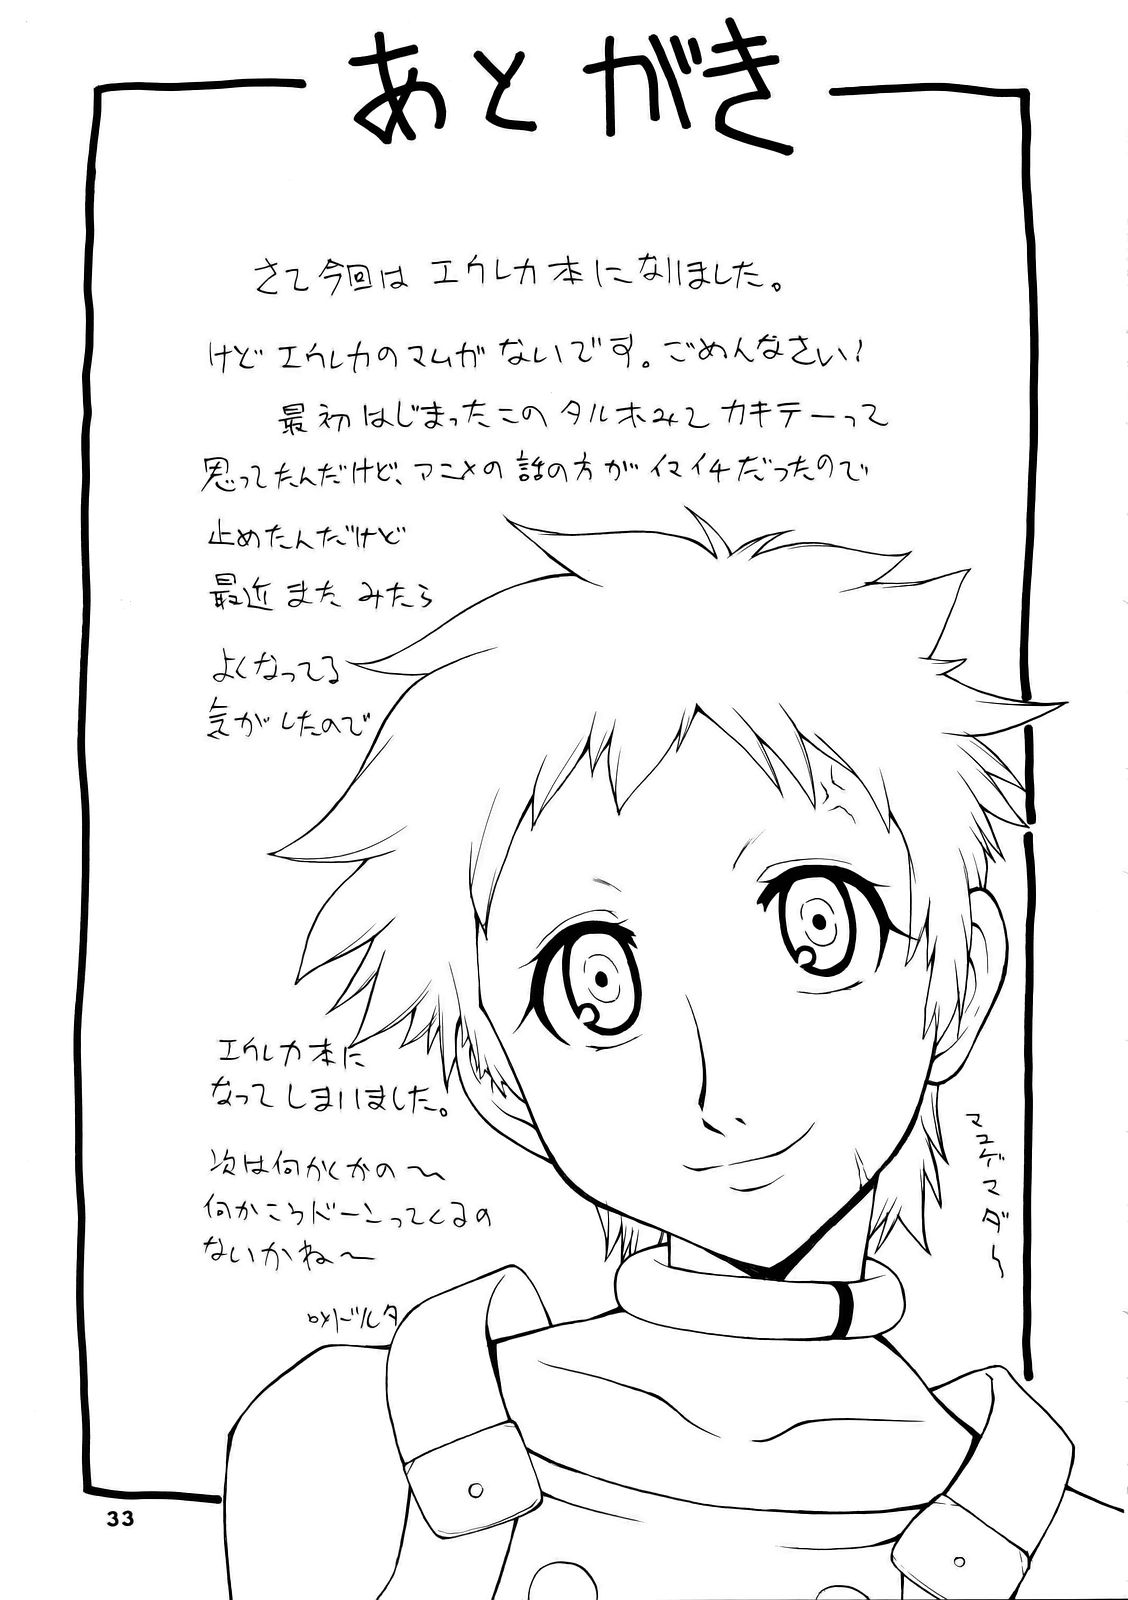 あとがき
さて今回は エウレカ本になりました。
けど エウレカのマムガ ないです。ごめんなさい!
最初 はじまったこの タルホみて カキテーって
思ってたんだけど、アニメの 話の方が イマイチだったので
止めたんだけど
最近 また みたら
よくなってる
気が したので
エウレカ本に
なって しまいました。
次は何かくかの〜
何かこうドーンってくるの
ないかね〜
マユゲマダ〜
33